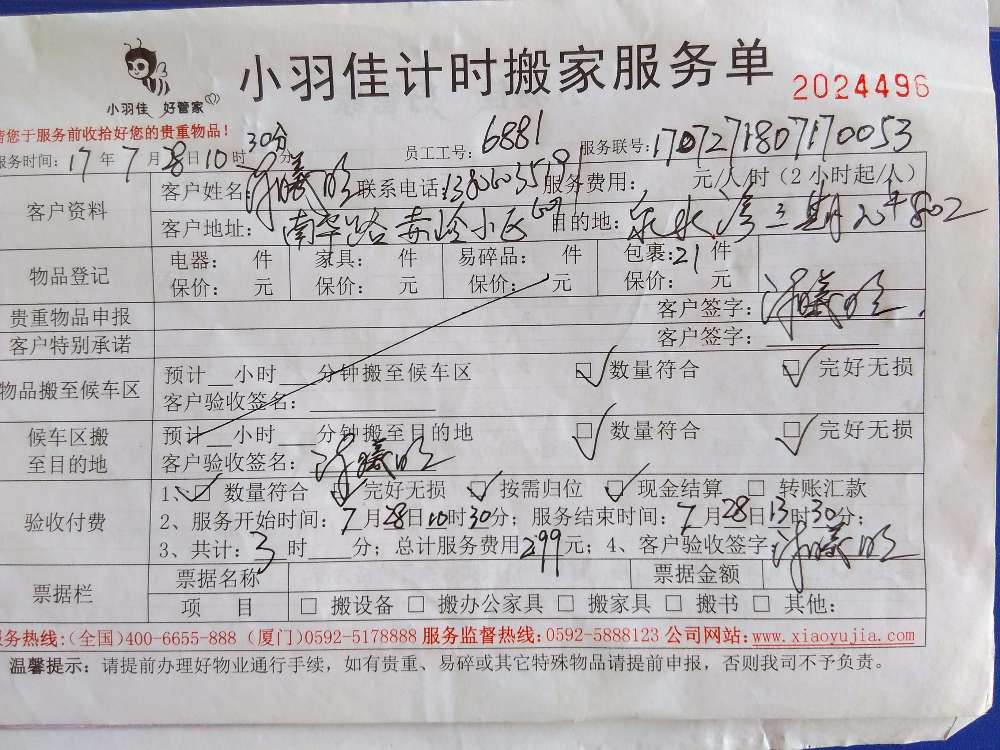 小羽佳 好管家
小羽佳计时搬家服务单
2024496
请您于服务前收拾好您的贵重物品!
服务时间: 17 年 7 月 28 日 10 时 30分 员工工号: 6881 服务联号: 1707271807170053
客户资料
客户姓名: 联系电话: 服务费用: 元/人/时（2 小时起/人）
客户地址: 南华路赤岭小区 目的地: 泉水湾二期 802
物品登记
电器: 件 家具: 件 易碎品: 件 包裹: 21 件
保价: 元 保价: 元 保价: 元 保价: 元
贵重物品申报 客户签字:
客户特别承诺 客户签字:
物品搬至候车区
预计__小时___分钟搬至候车区 数量符合 完好无损
客户验收签名:
候车区搬至目的地
预计__小时___分钟搬至目的地 数量符合 完好无损
客户验收签名:
验收付费
1、 数量符合 完好无损 按需归位 现金结算 转账汇款
2、服务开始时间: 7 月 28 日 10 时 30 分; 服务结束时间: 7 月 28 日 13 时 30 分;
3、共计: 3 时___分; 总计服务费用 299 元; 4、客户验收签字:
票据栏
票据名称 票据金额
项 目 搬设备 搬办公家具 搬家具 搬书 其他:
服务热线:(全国)400-6655-888 (厦门)0592-5178888 服务监督热线:0592-5888123 公司网站:www.xiaoyujia.com
温馨提示: 请提前办理好物业通行手续，如有贵重、易碎或其它特殊物品请提前申报，否则我司不予负责。